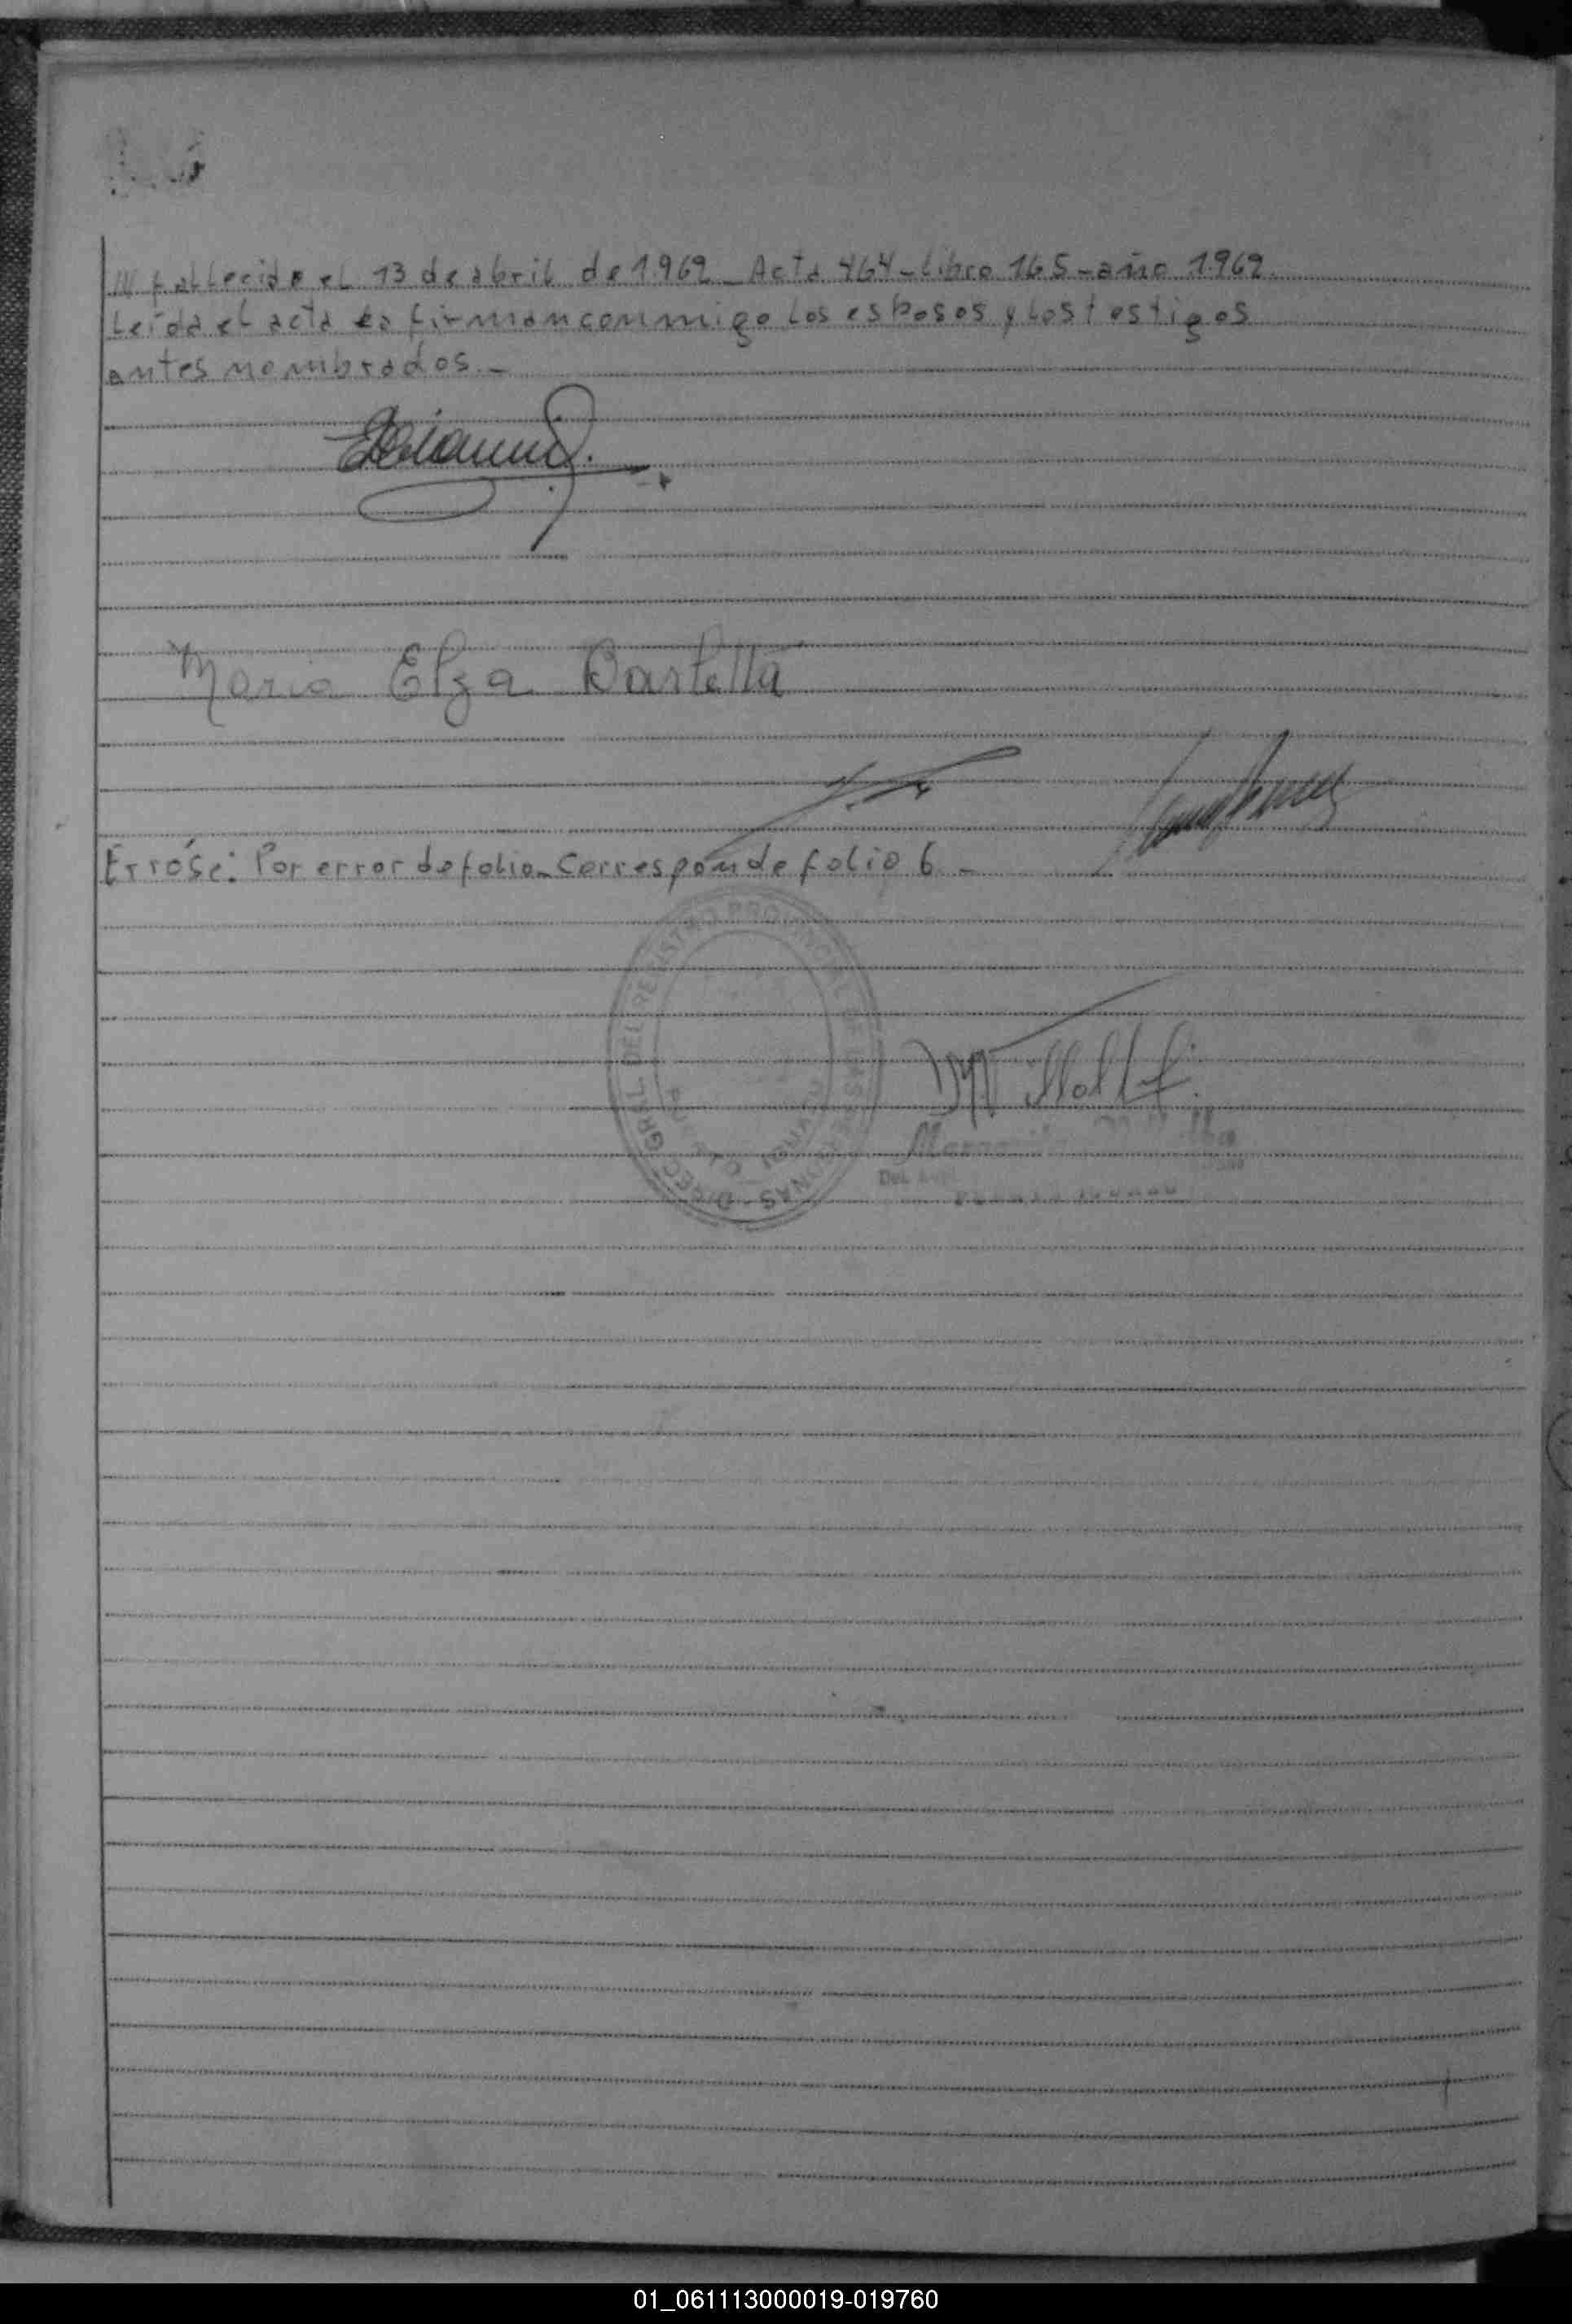 /// fallecido el 13 de abril de 1969_ Acta 464-Libro 165-año 1969.
Leída el acta la firman conmigo los esposos y los testigos
antes nombrados.-
Maria Elza Bartella
Erróse: Por error de folio-Corresponde folio 6.-
DIREC. GRAL. DEL REGISTRO PROVINCIAL DE LAS PERSONAS
01_061113000019-019760